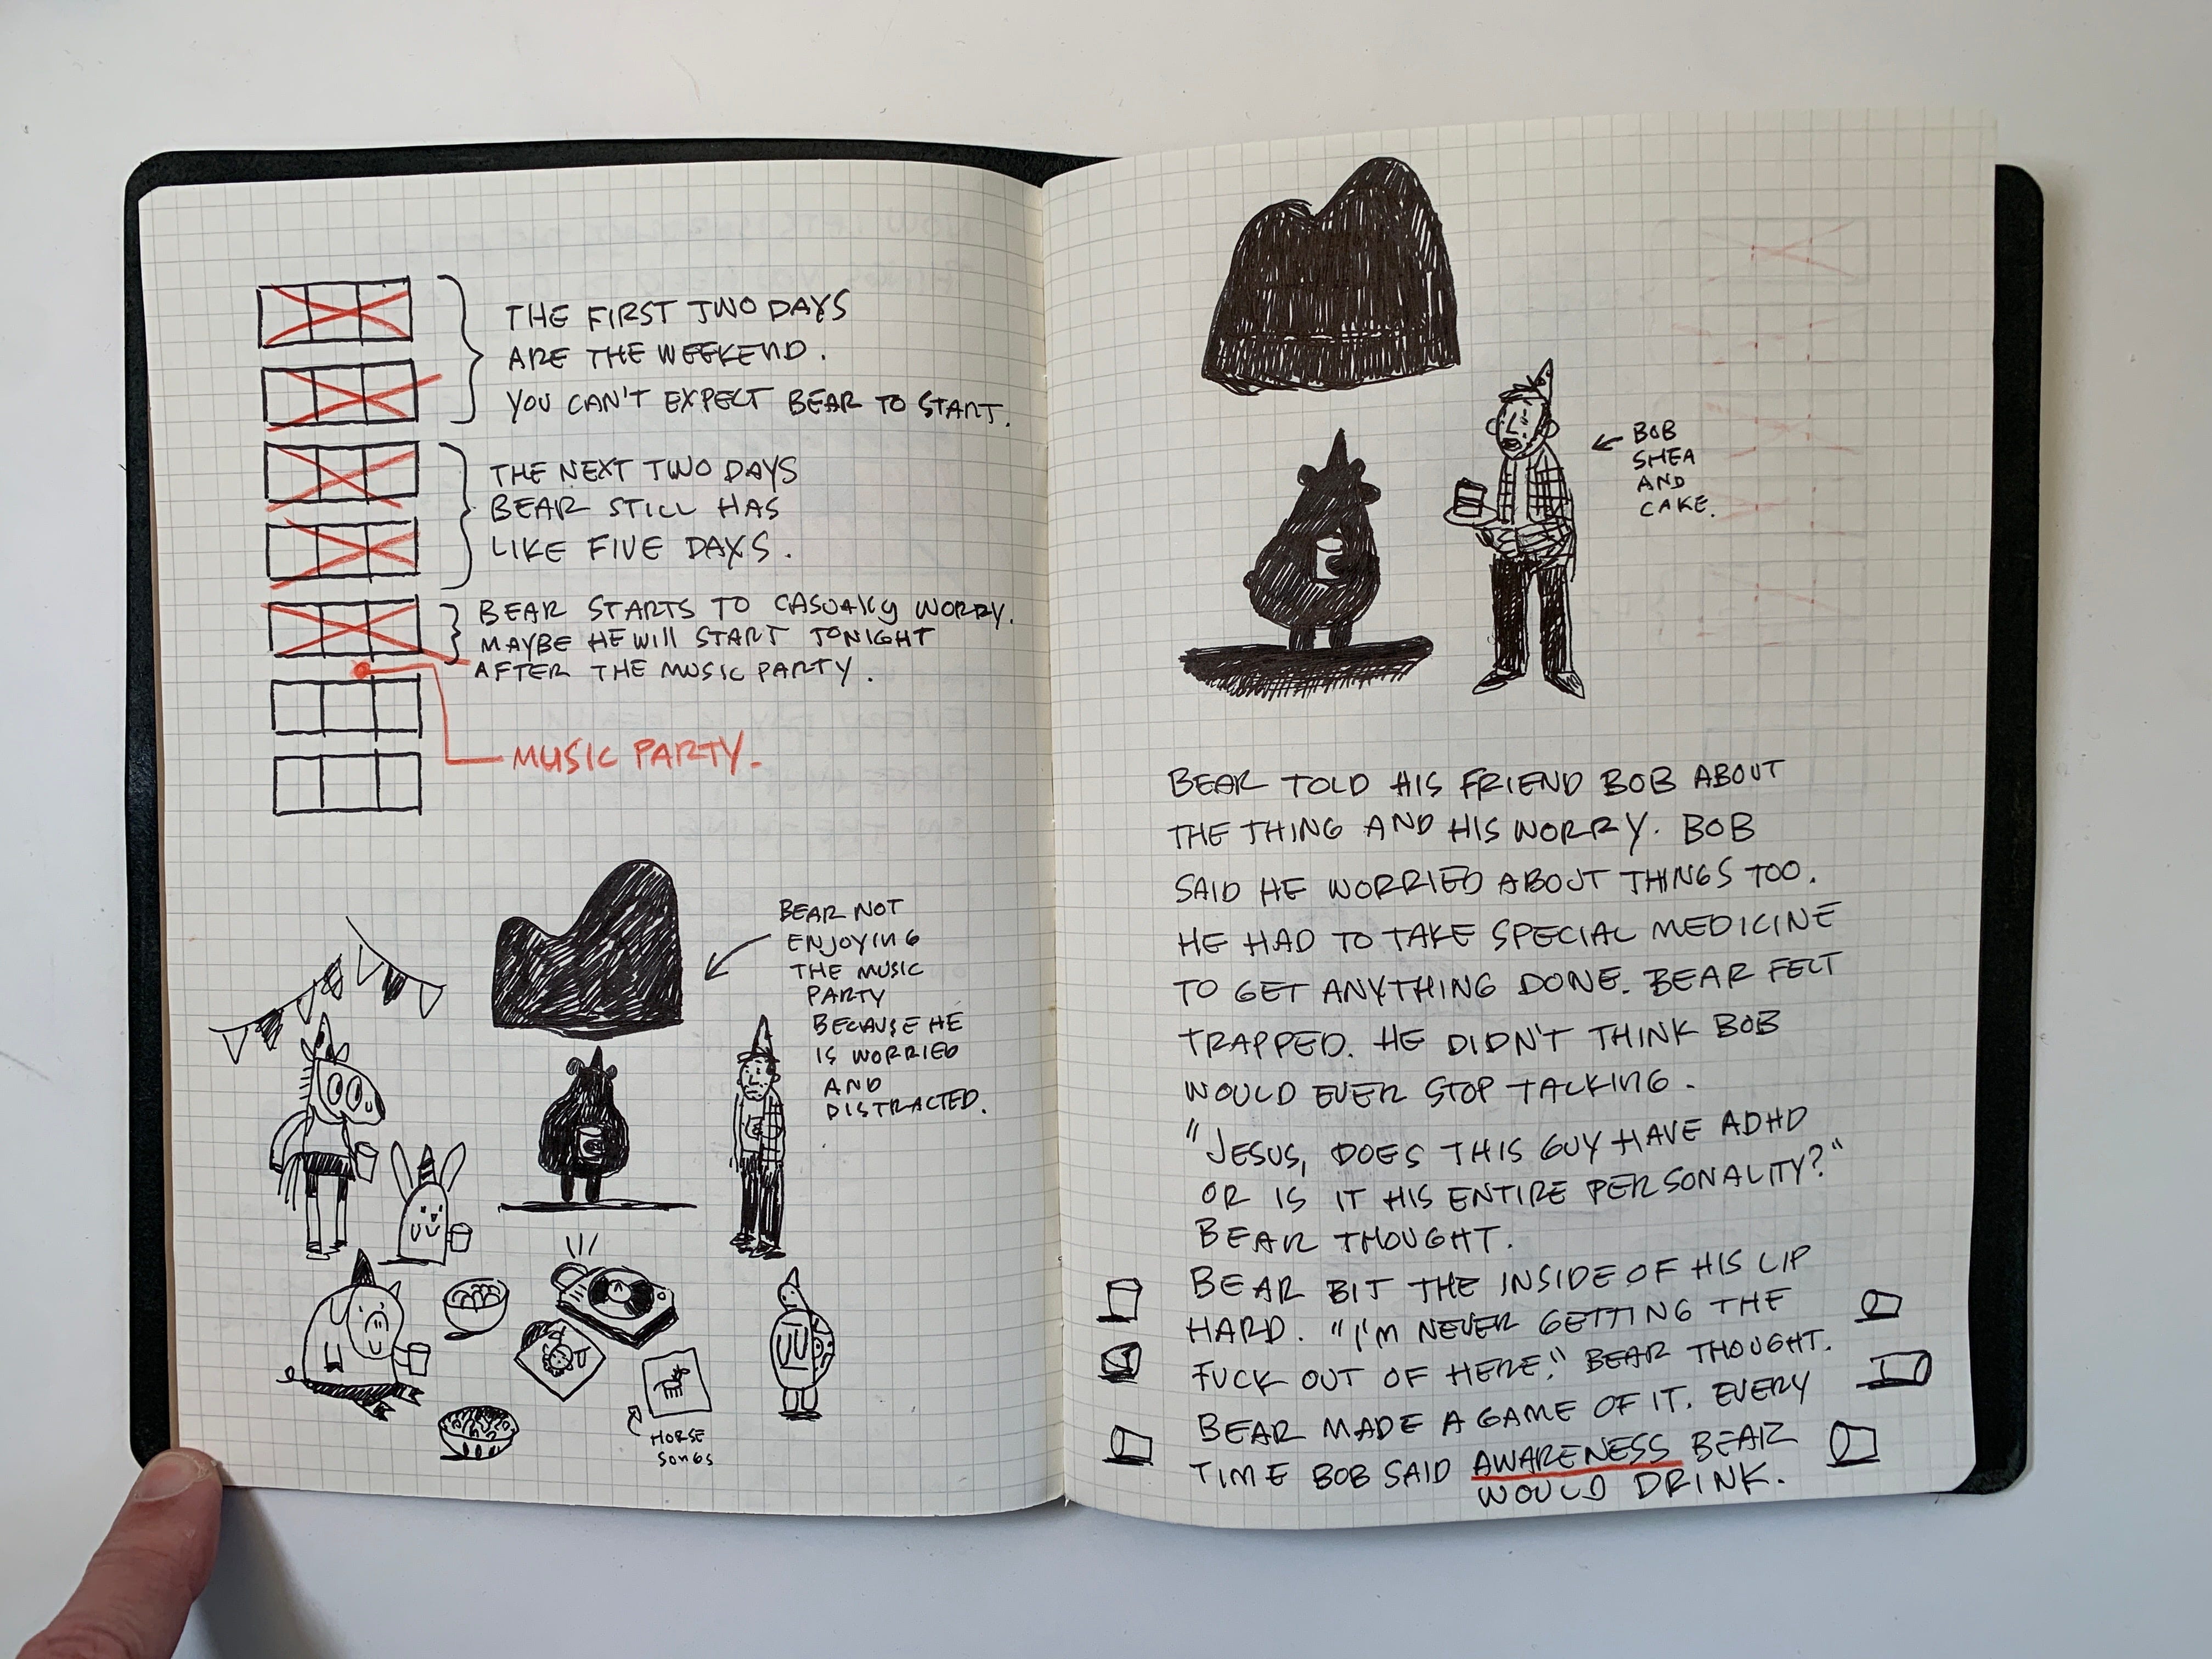 THE FIRST TWO DAYS
ARE THE WEEKEND.
YOU CAN'T EXPECT BEAR TO START.
THE NEXT TWO DAYS
BEAR STILL HAS
LIKE FIVE DAYS.
BEAR STARTS TO CASUALLY WORRY.
MAYBE HE WILL START TONIGHT
AFTER THE MUSIC PARTY.
MUSIC PARTY.
BEAR NOT
ENJOYING
THE MUSIC
PARTY
BECAUSE HE
IS WORRIED
AND
DISTRACTED.
HORSE
SONGS
BOB
SHEA
AND
CAKE.
BEAR TOLD HIS FRIEND BOB ABOUT
THE THING AND HIS WORRY. BOB
SAID HE WORRIED ABOUT THINGS TOO.
HE HAD TO TAKE SPECIAL MEDICINE
TO GET ANYTHING DONE. BEAR FELT
TRAPPED. HE DIDN'T THINK BOB
WOULD EVER STOP TALKING.
"JESUS, DOES THIS GUY HAVE ADHD
OR IS IT HIS ENTIRE PERSONALITY?"
BEAR THOUGHT.
BEAR BIT THE INSIDE OF HIS LIP
HARD. "I'M NEVER GETTING THE
FUCK OUT OF HERE." BEAR THOUGHT.
BEAR MADE A GAME OF IT. EVERY
TIME BOB SAID AWARENESS BEAR
WOULD DRINK.